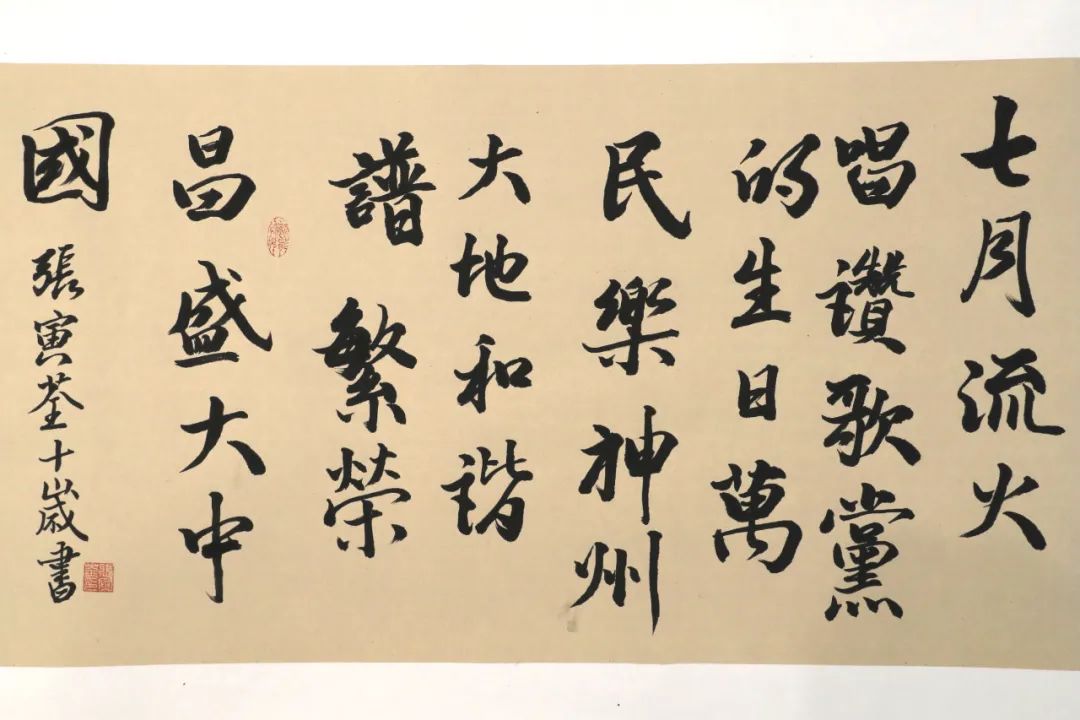 七月流火
唱讚歌黨
的生日萬
民樂神州
大地和諧
譜繁榮
昌盛大中
國
張寅荃十歲書